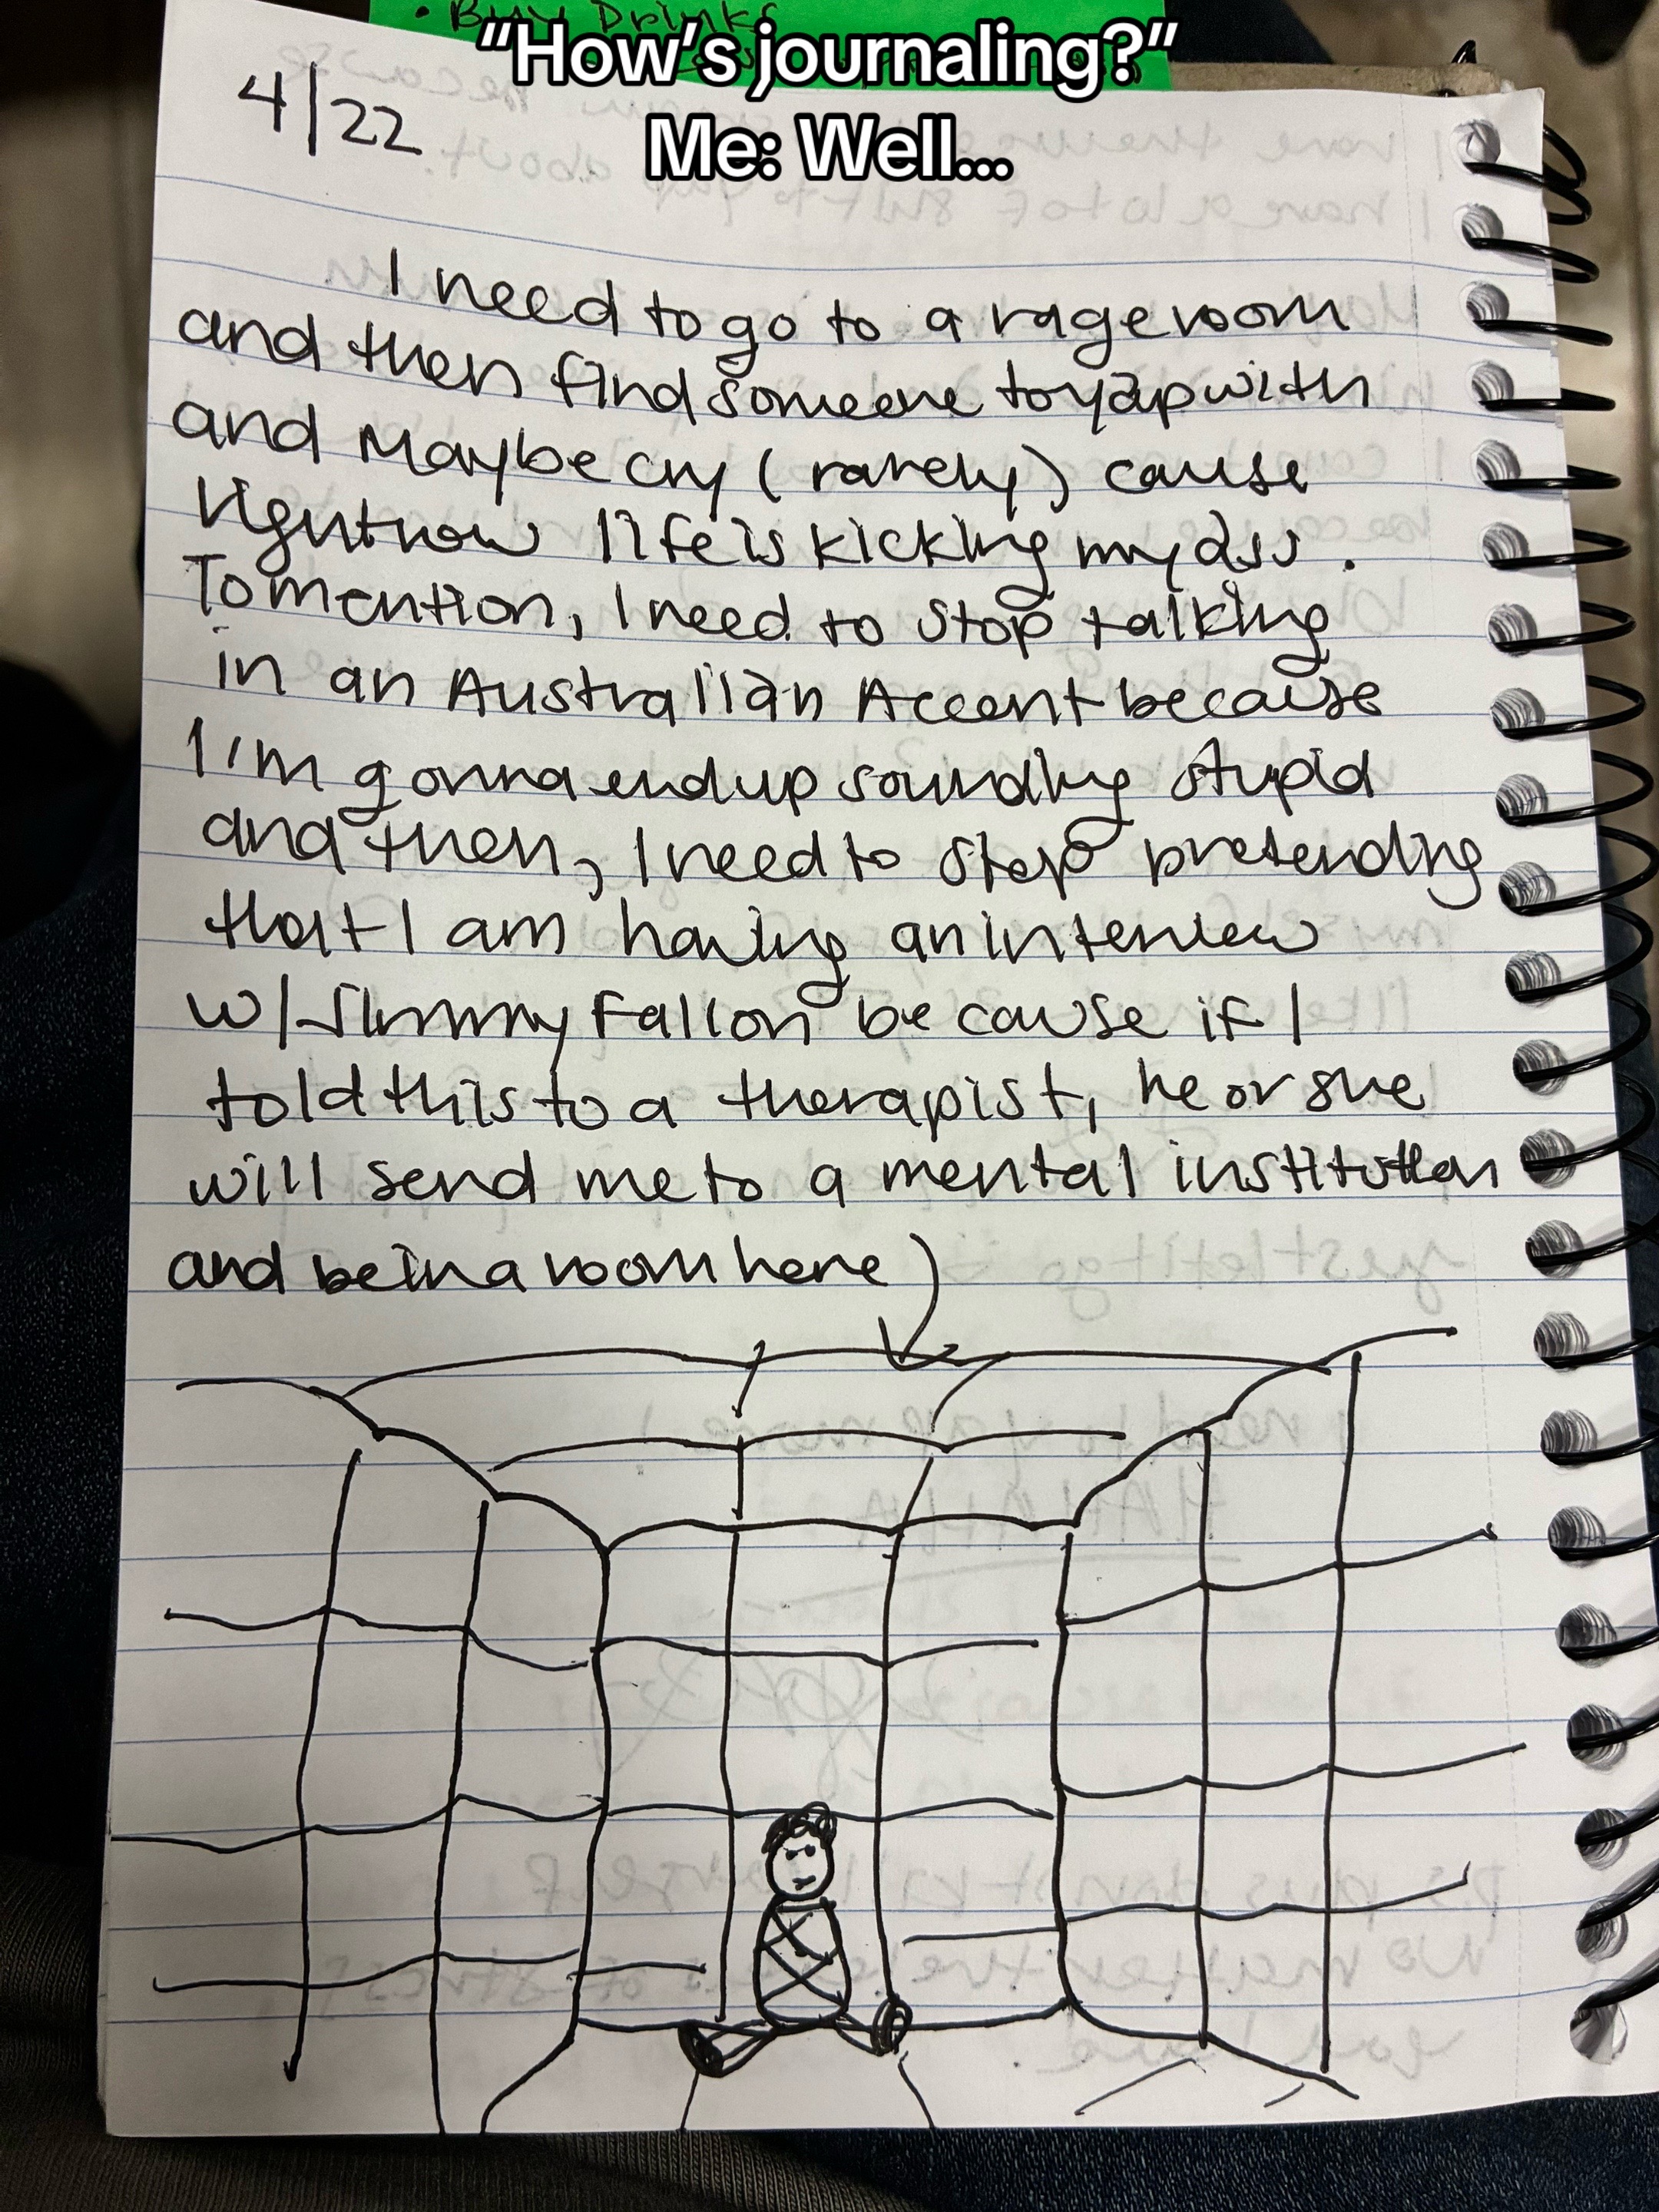 • Buy Drinks
“How’s journaling?”
Me: Well...
4/22
I need to go to a rage room
and then find someone to yap with
and Maybe cry (rarely) cause
right now life is kicking my ass.
To mention, I need to stop talking
in an Australian Accent because
I'm gonna end up sounding stupid
and then, I need to stop pretending
that I am having an interview
w/ Jimmy Fallon because if I
told this to a therapist, he or she
will send me to a mental institution
and be in a room here